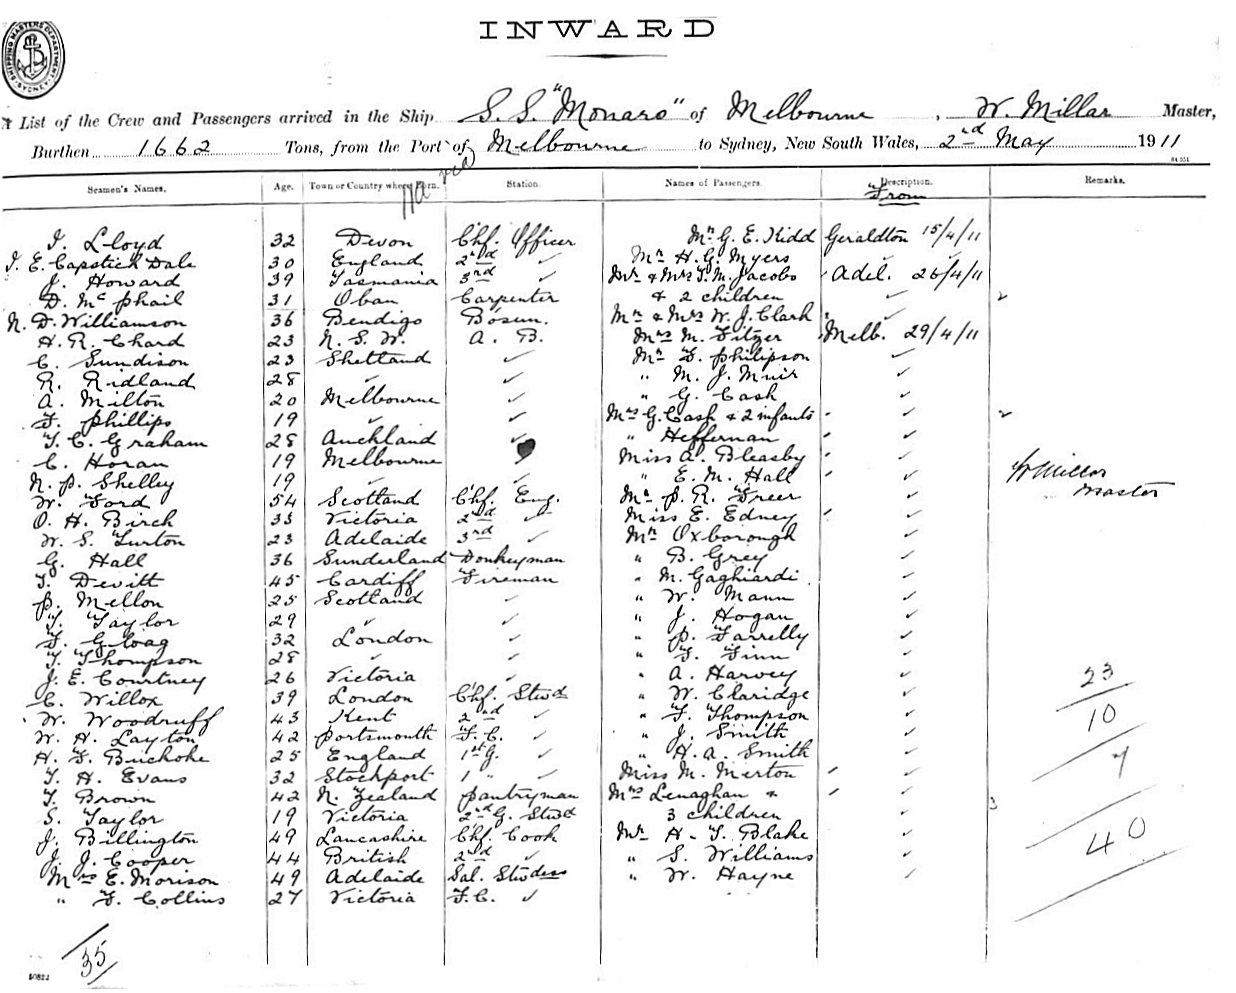 INWARD
SHIPPING MASTERS DEPARTMENT SYDNEY
A List of the Crew and Passengers arrived in the Ship S.S. "Monaro" of Melbourne, W. Millar Master,
Burthen 1662 Tons, from the Port of Melbourne to Sydney, New South Wales, 2nd May 1911
Seamen's Names. Age. Town or Country where Born. Station. Names of Passengers. Description. Remarks.
From
I. Lloyd 32 Devon Chf. Officer Mr G. E. Kidd Geraldton 15/4/11
J. E. Capstick Dale 30 England 2nd ✓ Mr H. G. Myers ✓ ✓
J. Howard 39 Tasmania 3rd ✓ Mr & Mrs T. M. Jacobs Adel. 26/4/11
D. McPhail 31 Oban Carpenter & 2 children ✓ 2
N. D. Williamson 36 Bendigo Bosun. Mr & Mrs W. J. Clark ✓
H. R. Chard 23 N. S. W. A. B. Mrs M. Fitzer Melb. 29/4/11
C. Sundison 23 Shetland ✓ Mr F. Philipson ✓
R. Ridland 28 ✓ ✓ " M. J. Muir ✓
A. Milton 20 Melbourne ✓ " G. Cash ✓
F. Phillips 19 ✓ ✓ Mrs G. Cash & 2 infants ✓ 2
T. C. Graham 28 Auckland ✓ " Heffernan ✓
C. Horan 19 Melbourne Miss A. Bleasby ✓
N. P. Shelley 19 ✓ ✓ " E. M. Hall ✓
W Millar
Master
W. Ford 54 Scotland Chf. Eng. Mr P. R. Freer ✓
O. H. Birch 35 Victoria 2nd ✓ Miss E. Edney ✓
W. S. Turton 23 Adelaide 3rd ✓ Mr Oxborough ✓
G. Hall 36 Sunderland Donkeyman " B. Grey ✓
T. Devitt 45 Cardiff Fireman " M. Gaghiardi ✓
P. Mellon 25 Scotland ✓ " W. Mann ✓
T. Taylor 29 ✓ ✓ " J. Hogan ✓
F. Gloag 32 London ✓ " P. Farrelly ✓
T. Thompson 28 ✓ ✓ " F. Finn ✓
J. E. Courtney 26 Victoria ✓ " A. Harvey ✓ 23
C. Willox 39 London Chf. Stwd " W. Claridge ✓
W. Woodruff 43 Kent 2nd ✓ " F. Thompson ✓ 10
W. H. Layton 42 Portsmouth F. C. ✓ " J. Smith ✓
H. F. Buchoke 25 England 1st G. ✓ " H. A. Smith ✓
T. H. Evans 32 Stockport 1 " ✓ Miss M. Merton ✓ 7
T. Brown 42 N. Zealand Pantryman Mrs Lenaghan & ✓
S. Taylor 19 Victoria 2nd G. Stwd 3 children ✓ 3
J. Billington 49 Lancashire Chf. Cook Mr H. T. Blake ✓ 40
J. J. Cooper 44 British 2nd ✓ " S. Williams ✓
Mrs E. Morison 49 Adelaide Sal. Stwdess " W. Hayne ✓
" F. Collins 27 Victoria F. C. ✓
35